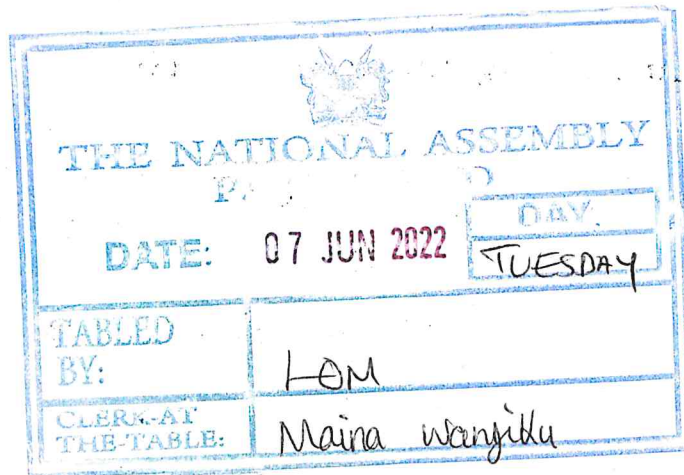 THE NATIONAL ASSEMBLY
DATE: 07 JUN 2022
DAY.
TUESDAY
TABLED
BY:
LOM
CLERK-AT
THE-TABLE:
Maina Wanjiku